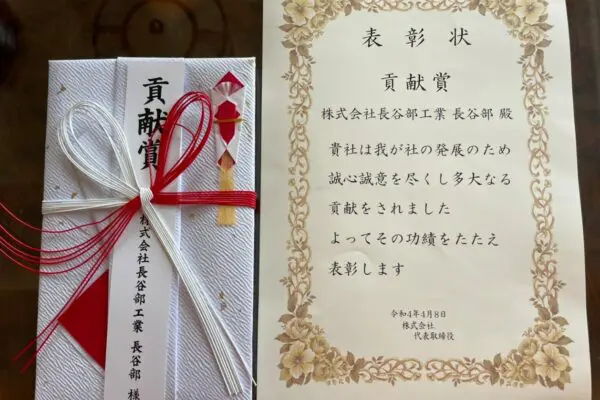 貢献賞
株式会社長谷部工業 長谷部 様
表彰状
貢献賞
株式会社長谷部工業 長谷部 殿
貴社は我が社の発展のため
誠心誠意を尽くし多大なる
貢献をされました
よってその功績をたたえ
表彰します
令和4年4月8日
株式会社
代表取締役